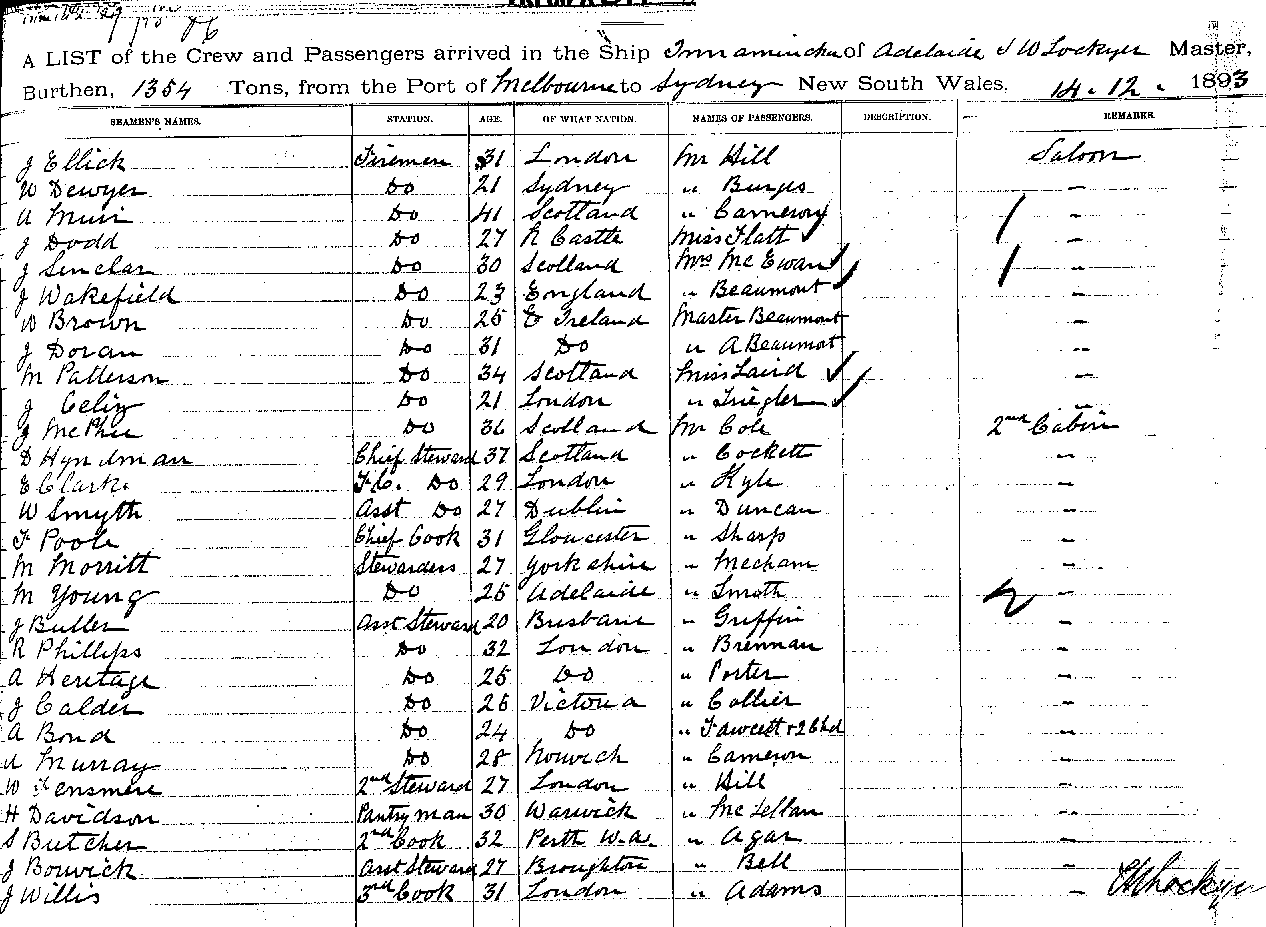 A LIST of the Crew and Passengers arrived in the Ship Innamincka of Adelaide J W Lockyer Master,
Burthen, 1354 Tons, from the Port of Melbourne to Sydney New South Wales. 14.12. 1893
SEAMEN'S NAMES. STATION. AGE. OF WHAT NATION. NAMES OF PASSENGERS. DESCRIPTION. REMARKS.
J Ellick Firemen 31 London Mr Hill Saloon
W Dewyer Do 21 Sydney " Burges "
A Muir Do 41 Scotland " Cameron "
J Dodd Do 27 N Castle Miss Flatt "
J Sinclar Do 30 Scotland Mrs Mc Ewan "
J Wakefield Do 23 England " Beaumont "
W Brown Do 25 Ireland Master Beaumont "
J Doran Do 31 Do " A Beaumont "
M Patterson Do 34 Scotland Miss Laird "
J Do 21 London " "
J McPhee Do 36 Scotland Mr Cole 2nd Cabin
D Hyndman Chief Steward 37 Scotland " Cockett "
E Clarke F.C. Do 29 London " Kyle "
W Smyth Asst Do 27 Dublin " Duncan "
F Poole Chief Cook 31 Gloucester " Sharp "
M Morritt Stewardess 27 Yorkshire " Mecham "
M Young Do 25 Adelaide " Smith "
J Butler Asst Steward 20 Brisbane " Griffin "
R Phillips Do 32 London " Brennan "
A Heritage Do 25 Do " Porter "
J Calder Do 26 Victoria " Collier "
A Bond Do 24 Do " Fawcett & 2 Chd "
A Murray Do 28 Norwich " Cameron "
W 2nd Steward 27 London " Hill "
H Davidson Pantryman 30 Warwick " McLellan "
S Butcher 2nd Cook 32 Perth W.A. " Agar "
J Borwick Asst Steward 27 Broughton " Bell "
J Willis 3rd Cook 31 London " Adams " Lockyer